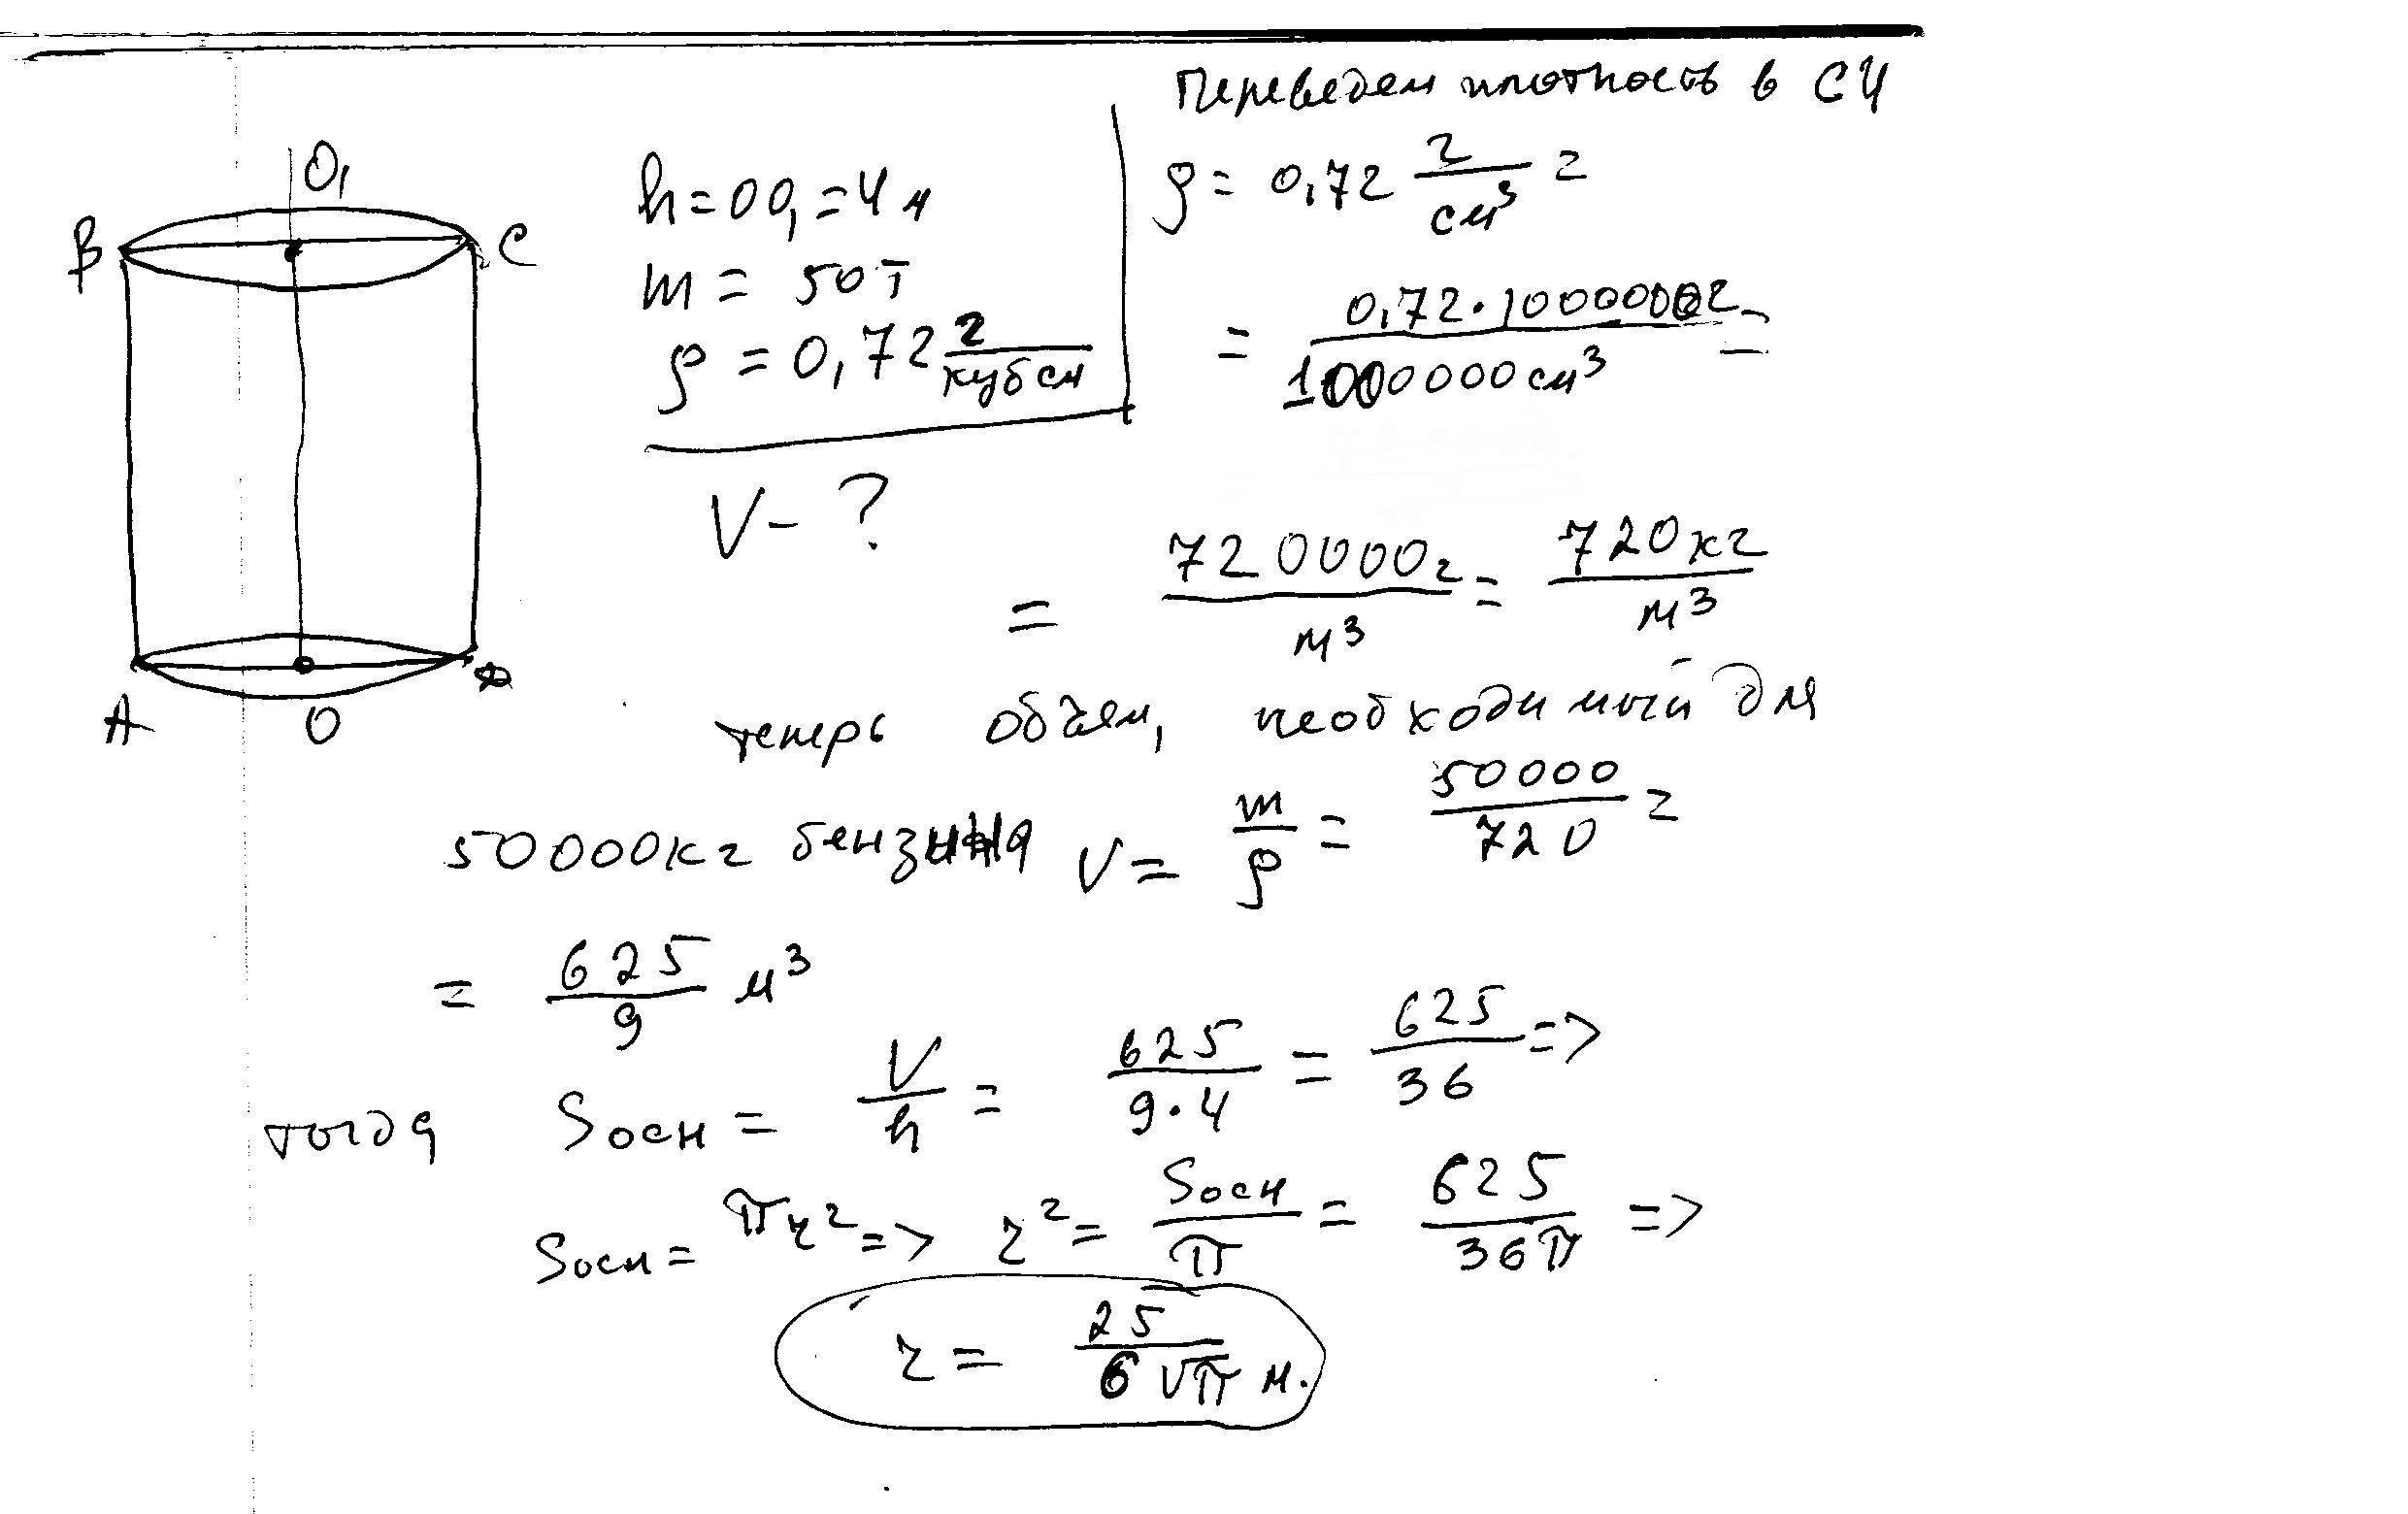 O₁
B
C
A
O
h = OO₁ = 4 м
m = 50 т
ρ = 0,72 г/куб см
V - ?
Переведем плотность в СИ
ρ = 0,72 г/см³ =
= 0,72·1000000г / 1000000 см³ =
= 720000г/м³ = 720кг/м³
теперь объем, необходимый для
50000кг бензина V = m/ρ = 50000/720 =
= 625/9 м³
тогда Sосн = V/h = 625/9·4 = 625/36 =>
Sосн = πr² => r² = Sосн/π = 625/36π =>
r = 25/6√π м.